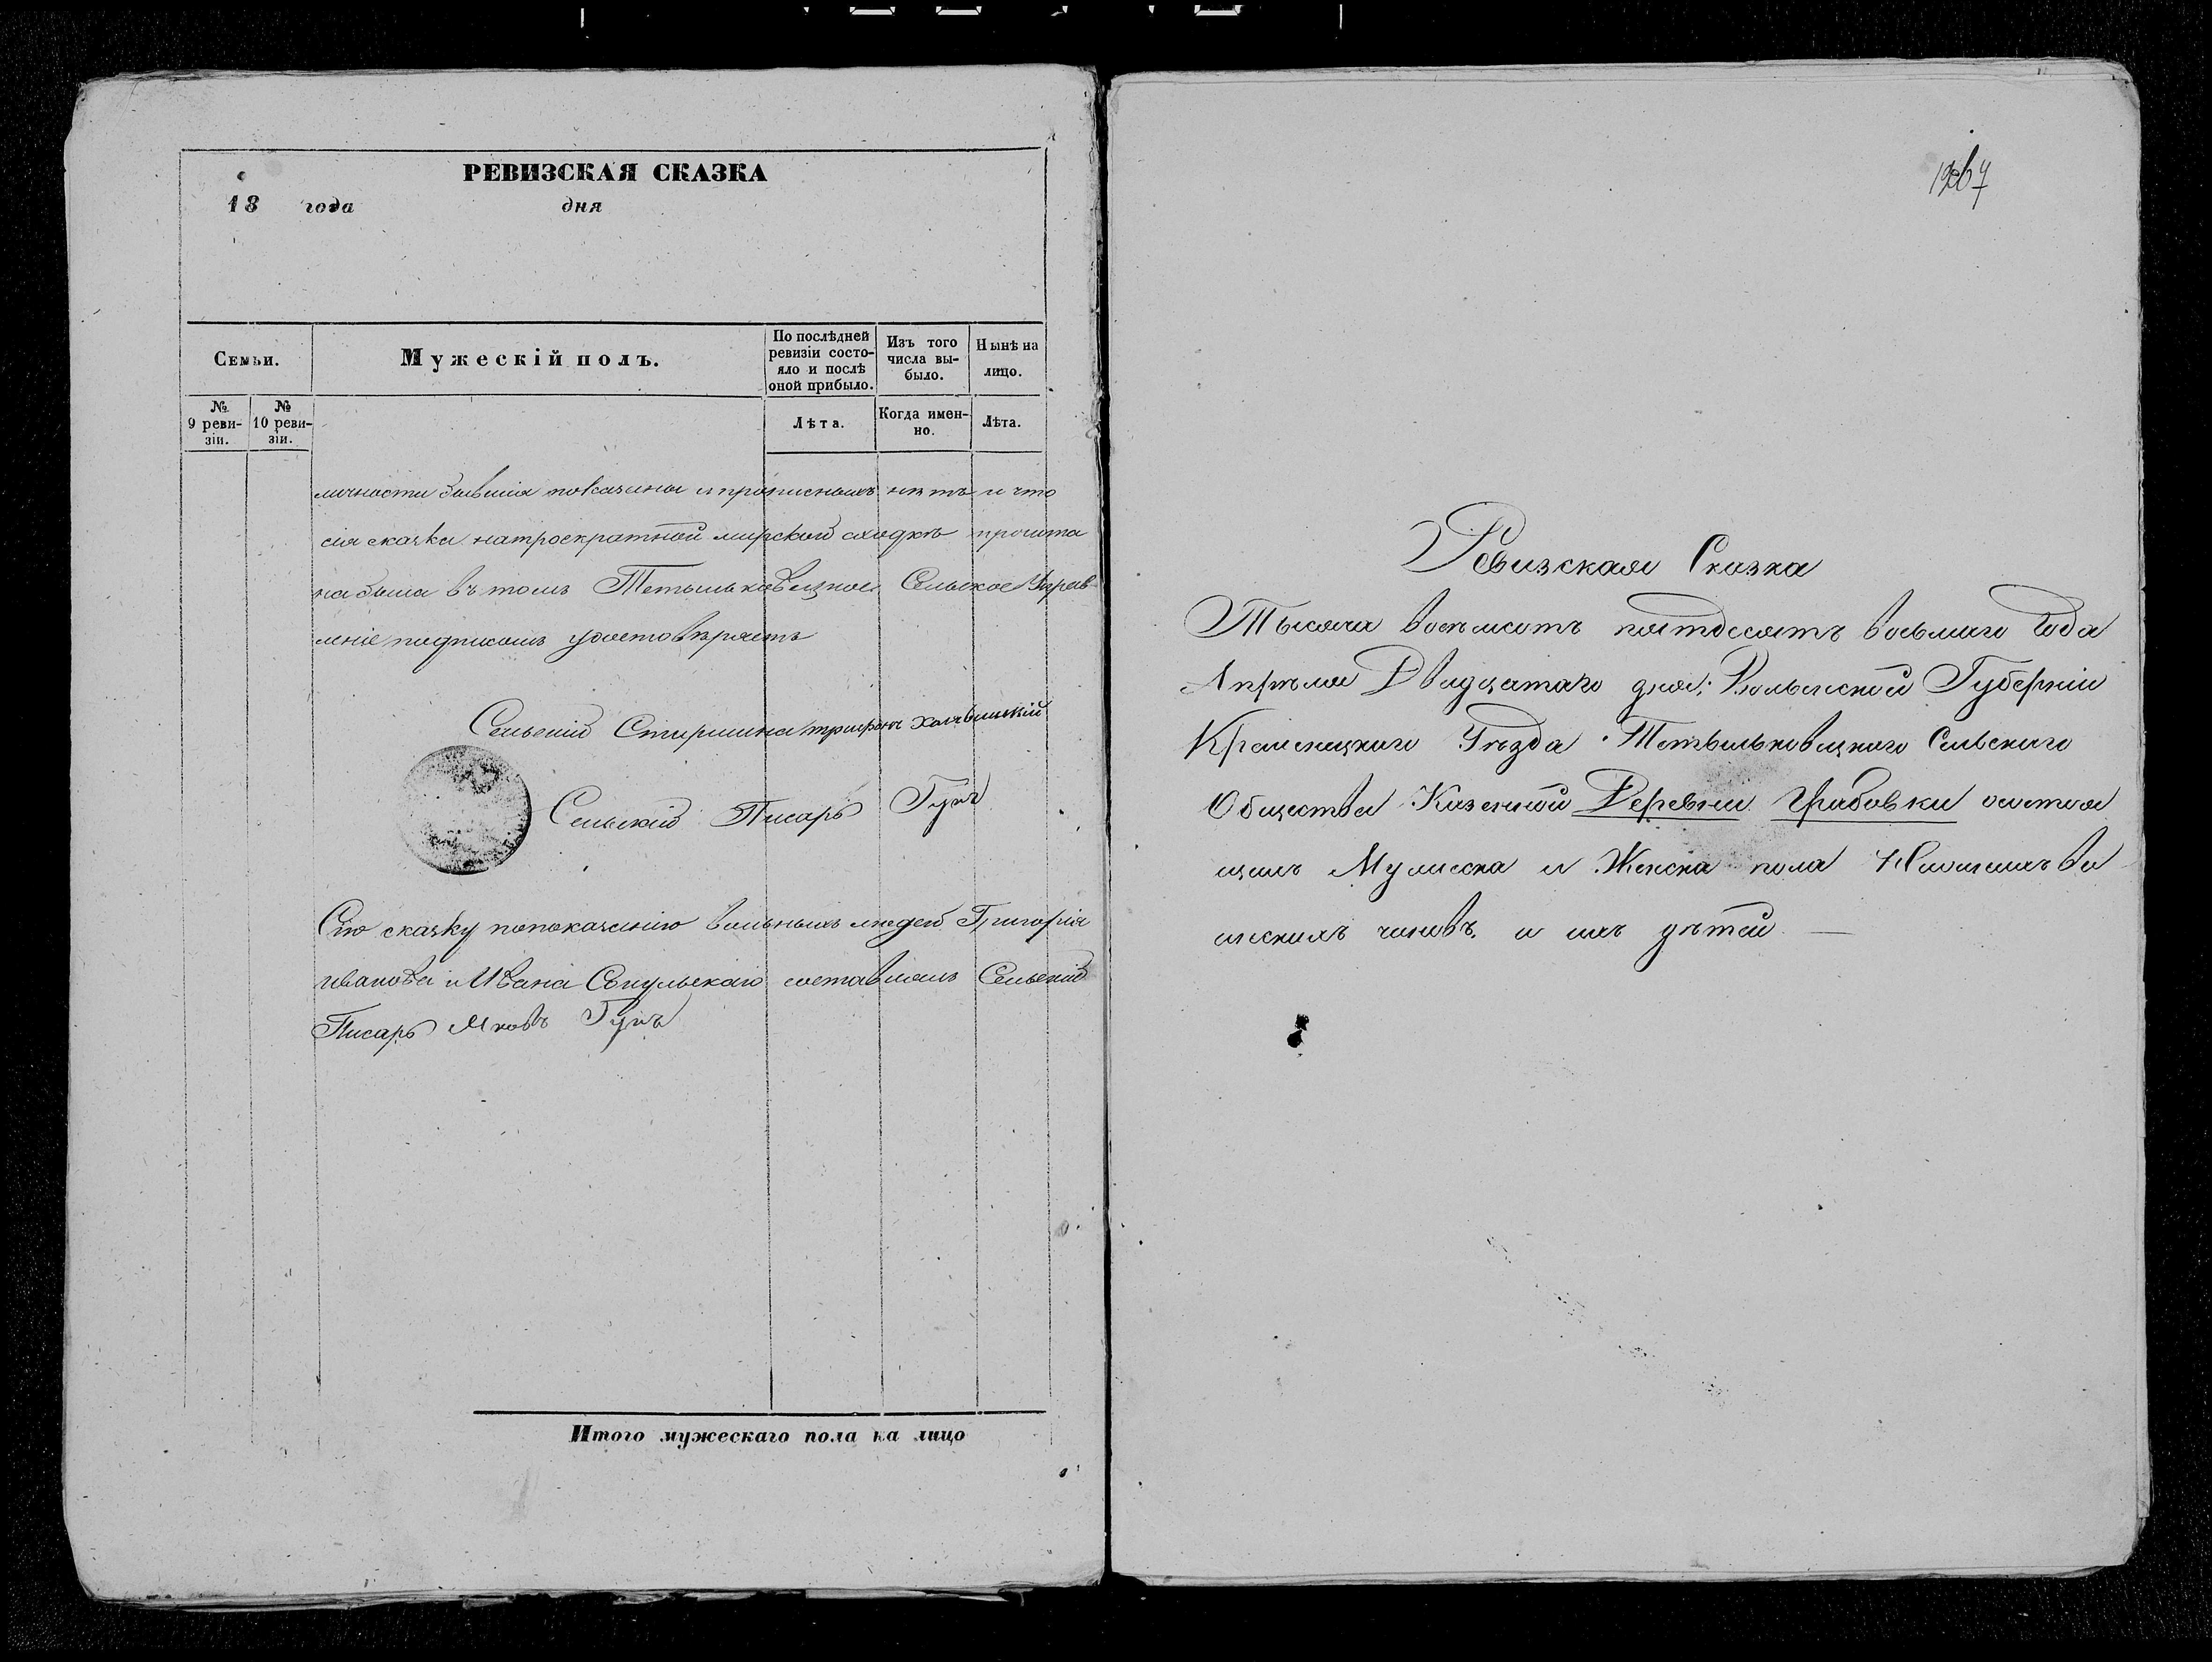 РЕВИЗСКАЯ СКАЗКА
18 года дня
Семьи.
Мужескій полъ.
По послѣдней ревизіи состояло и послѣ оной прибыло.
Изъ того числа выбыло.
Нынѣ на лицо.
№ 9 ревизіи.
№ 10 ревизіи.
Лѣта.
Когда именно.
Лѣта.
личности бывшія показаны и прописныхъ нѣтъ и что
сія сказка натроекратной мирской сходкѣ прочита
на была въ томъ Тетыльковецкое Сельское Управ-
леніе подписомъ удостовѣряетъ
Сельскій Старшина трифонъ
Сельскій Писарь Гукъ
Сію сказку попоказанію вольныхъ людей Григорія
иванова и Ивана составлялъ Сельскій
Писарь Яковъ Гукъ
Итого мужескаго пола на лицо
Ревизская Сказка
Тысяча восемсотъ пятдесятъ восьмаго года
Апрѣля Двадцатаго дня; Волынской Губерніи
Кременецкаго Уѣзда Тетыльковецкаго Сельскаго
Общества Казенной Деревни Грабовки состоя
щимъ Мужеска и Женска пола
чиновъ. и ихъ дѣтей —